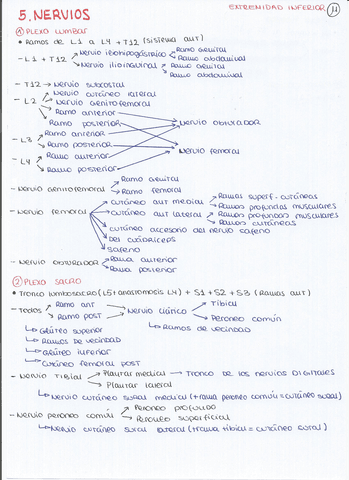 EXTREMIDAD INFERIOR 11
5. NERVIOS
1 PLEXO LUMBAR
• Ramos de L1 a L4 + T12 (sistema ant)
- L1 + T12 → Nervio iliohipogástrico → Ramo genital
→ Ramo abdominal
→ Nervio ilioinguinal → Ramo genital
→ Ramo abdominal
- T12 → Nervio subcostal
- L2 → Nervio cutáneo lateral
→ Nervio genitofemoral
→ Ramo anterior
→ Ramo posterior
Nervio obturador
- L3 → Ramo anterior
→ Ramo posterior
Nervio femoral
- L4 → Ramo anterior
→ Ramo posterior
- Nervio genitofemoral → Ramo genital
→ Ramo femoral
- Nervio femoral → Cutáneo ant medial → Ramos superf-cutáneas
→ Ramos profundas musculares
→ Cutáneo ant lateral → Ramos profundos musculares
→ Ramos cutáneos
→ Cutáneo accesorio del nervio safeno
→ Del cuádriceps
→ Safeno
- Nervio obturador → Rama anterior
→ Rama posterior
2 PLEXO SACRO
• Tronco lumbosacro (L5 + anastomosis L4) + S1 + S2 + S3 (Ramas ant)
- Todos → Ramo ant
→ Ramo post
→ Nervio ciático → Tibial
→ Peroneo común
↳ Ramos de vecindad
↳ Glúteo superior
↳ Ramos de vecindad
↳ Glúteo inferior
↳ Cutáneo femoral post
- Nervio tibial → Plantar medial → Tronco de los nervios DIGITALES
→ Plantar lateral
↳ Nervio cutáneo sural medial (+ rama peroneo común = cutáneo sural)
- Nervio peroneo común → Peroneo profundo
→ Peroneo superficial
↳ Nervio cutáneo sural lateral (+ rama tibial = cutáneo sural)